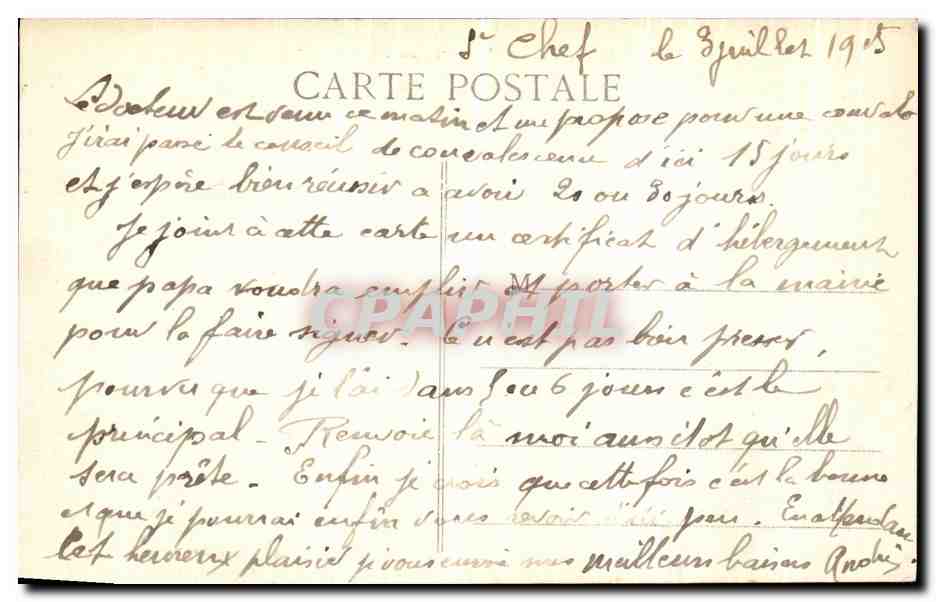 St Chef le 3 juillet 1915
CARTE POSTALE
Le docteur est venu ce matin et me propose pour une convalo
J'irai passé le conseil de convalescence d'ici 15 jours
et j'espère bien réussir a avoir 20 ou 30 jours.
Je joins à cette carte un certificat d'hébergement
que papa voudra emplir et porter à la mairie
CPAPHIL
pour la faire signer. Ce n'est pas bien presser,
pourvu que je l'ai dans 5 ou 6 jours c'est le
principal - Renvoie là moi aussitot qu'elle
sera prête - Enfin je crois que cette fois c'est la bonne
et que je pourrai enfin vous revoir d'ici peu. En attendan
cet heureux plaisir je vous envoie mes meilleurs baisers André.